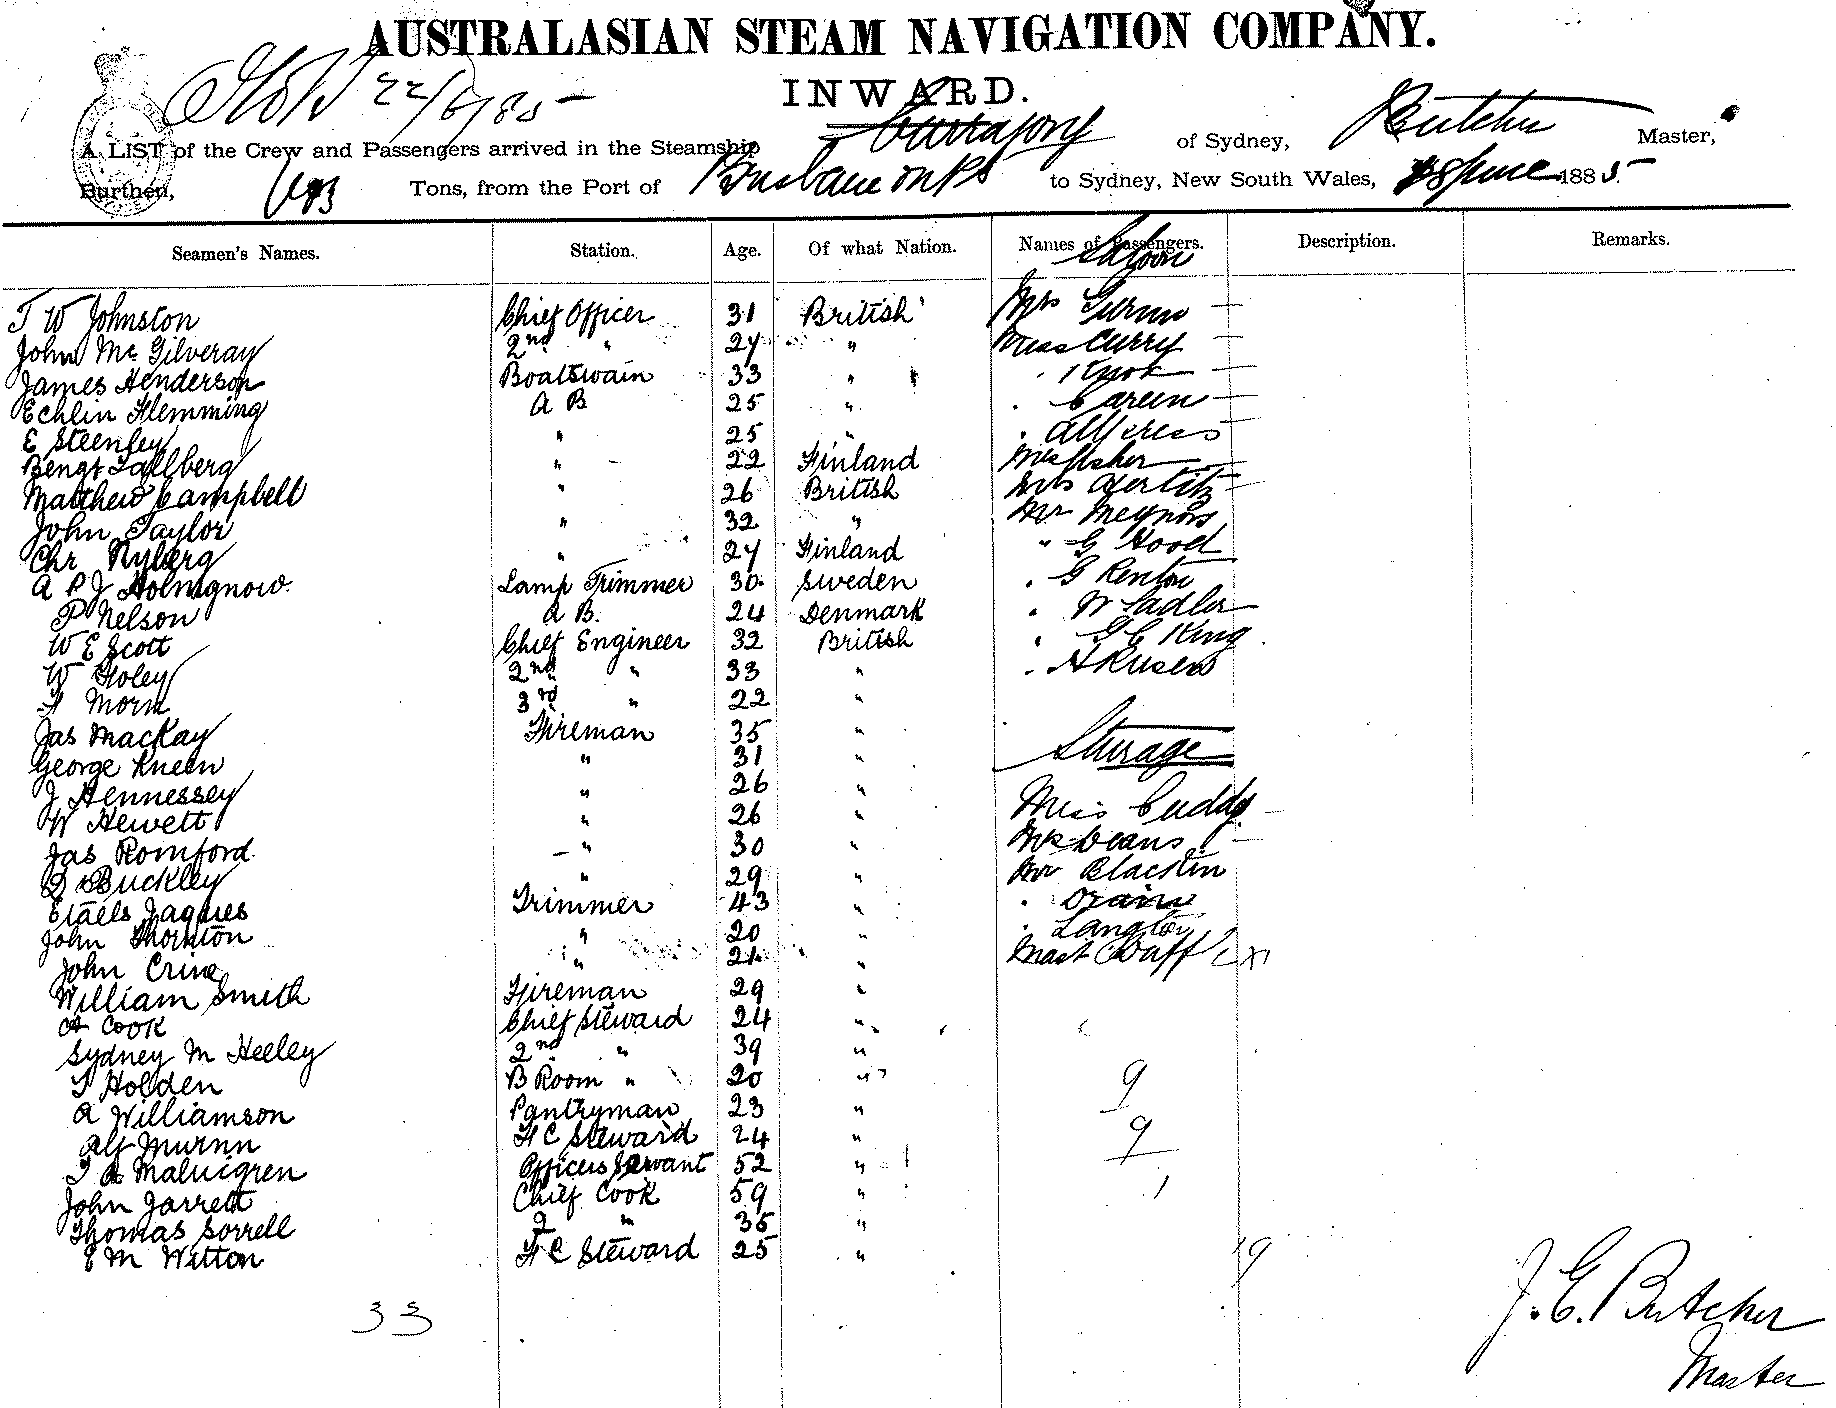 AUSTRALASIAN STEAM NAVIGATION COMPANY.
INWARD.
22/6/85
A LIST of the Crew and Passengers arrived in the Steamship Currajong of Sydney, Butcher Master,
Burthen, Tons, from the Port of Brisbane to Sydney, New South Wales, June 1885.
Seamen's Names. Station. Age. Of what Nation. Names of Passengers. Description. Remarks.
Saloon
T W Johnston Chief Officer 31 British Mrs
John Mc Gilveray 2nd " 27 " Miss Curry
James Henderson Boatswain 33 "
Echlin Flemming A B 25 "
E Steenley " 25 "
Bengt Tallberg " 22 Finland Mrs Fisher
Matthew Campbell " 26 British Mrs
John Taylor " 32 " Mr Meynors
Chr Nyberg " 27 Finland " G Hood
A P J Holmgnow Lamp Trimmer 30 Sweden " G Renton
P Nelson A B. 24 Denmark " W Sadler
W E Scott Chief Engineer 32 British " G C King
W Foley 2nd " 33 "
F Morn 3rd " 22 "
Jas Mackay Fireman 35 "
Sturage
George Kneen " 31 "
J Hennessey " 26 " Miss Cuddy
W Hewett " 26 " Mrs Deans
Jas Romford " 30 " Mr Blacklin
Buckley " 29 "
Etaels Jaques Trimmer 43 " " Langton
John Thornton " 20 " Mast
John Crine " 21 "
William Smith Fireman 29 "
A Cook Chief Steward 24 "
Sydney M Heeley 2nd " 39 "
T Holden B Room " 20 " 9
A Williamson Pantryman 23 "
Alf Murnn F C Steward 24 " 9
T A Malmgren Officers Servant 52 "
John Jarrett Chief Cook 59 " 1
Thomas Sorrell 2 " 35 "
E M Witton F C Steward 25 " 19
33
J. E. Butcher
Master